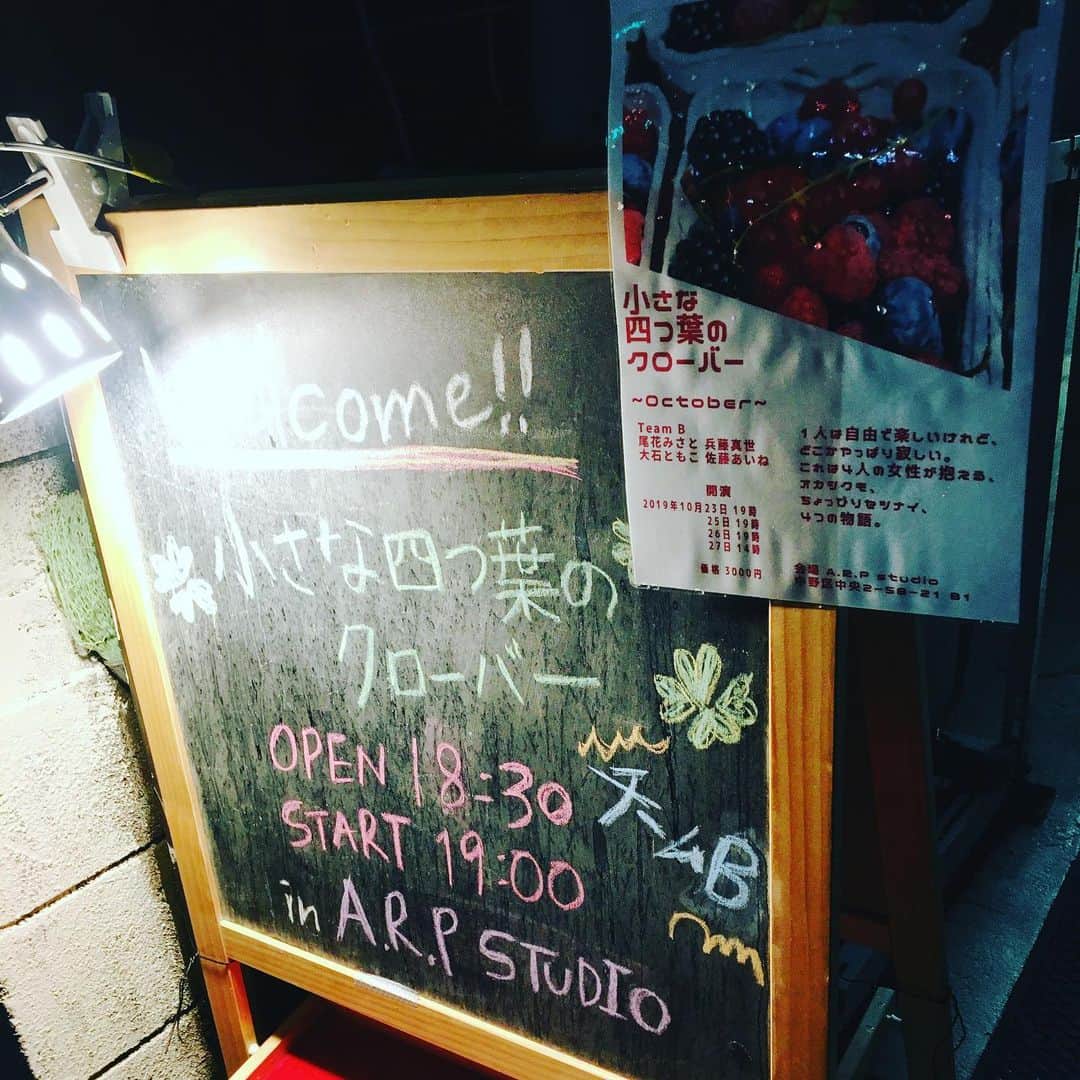 Welcome!!
小さな四つ葉の
クローバー
OPEN 18:30
START 19:00
in A.R.P STUDIO
チームB
小さな
四つ葉の
クローバー
~October~
Team B
尾花みさと 兵藤真世
大石ともこ 佐藤あいね
開演
2019年10月23日 19時
25日 19時
26日 19時
27日 14時
価格 3000円
1人は自由で楽しいけれど、
どこかやっぱり寂しい。
これは4人の女性が抱える、
オカシクモ、
ちょっぴりセツナイ、
4つの物語。
会場 A.R.P studio
中野区中央2-58-21 B1